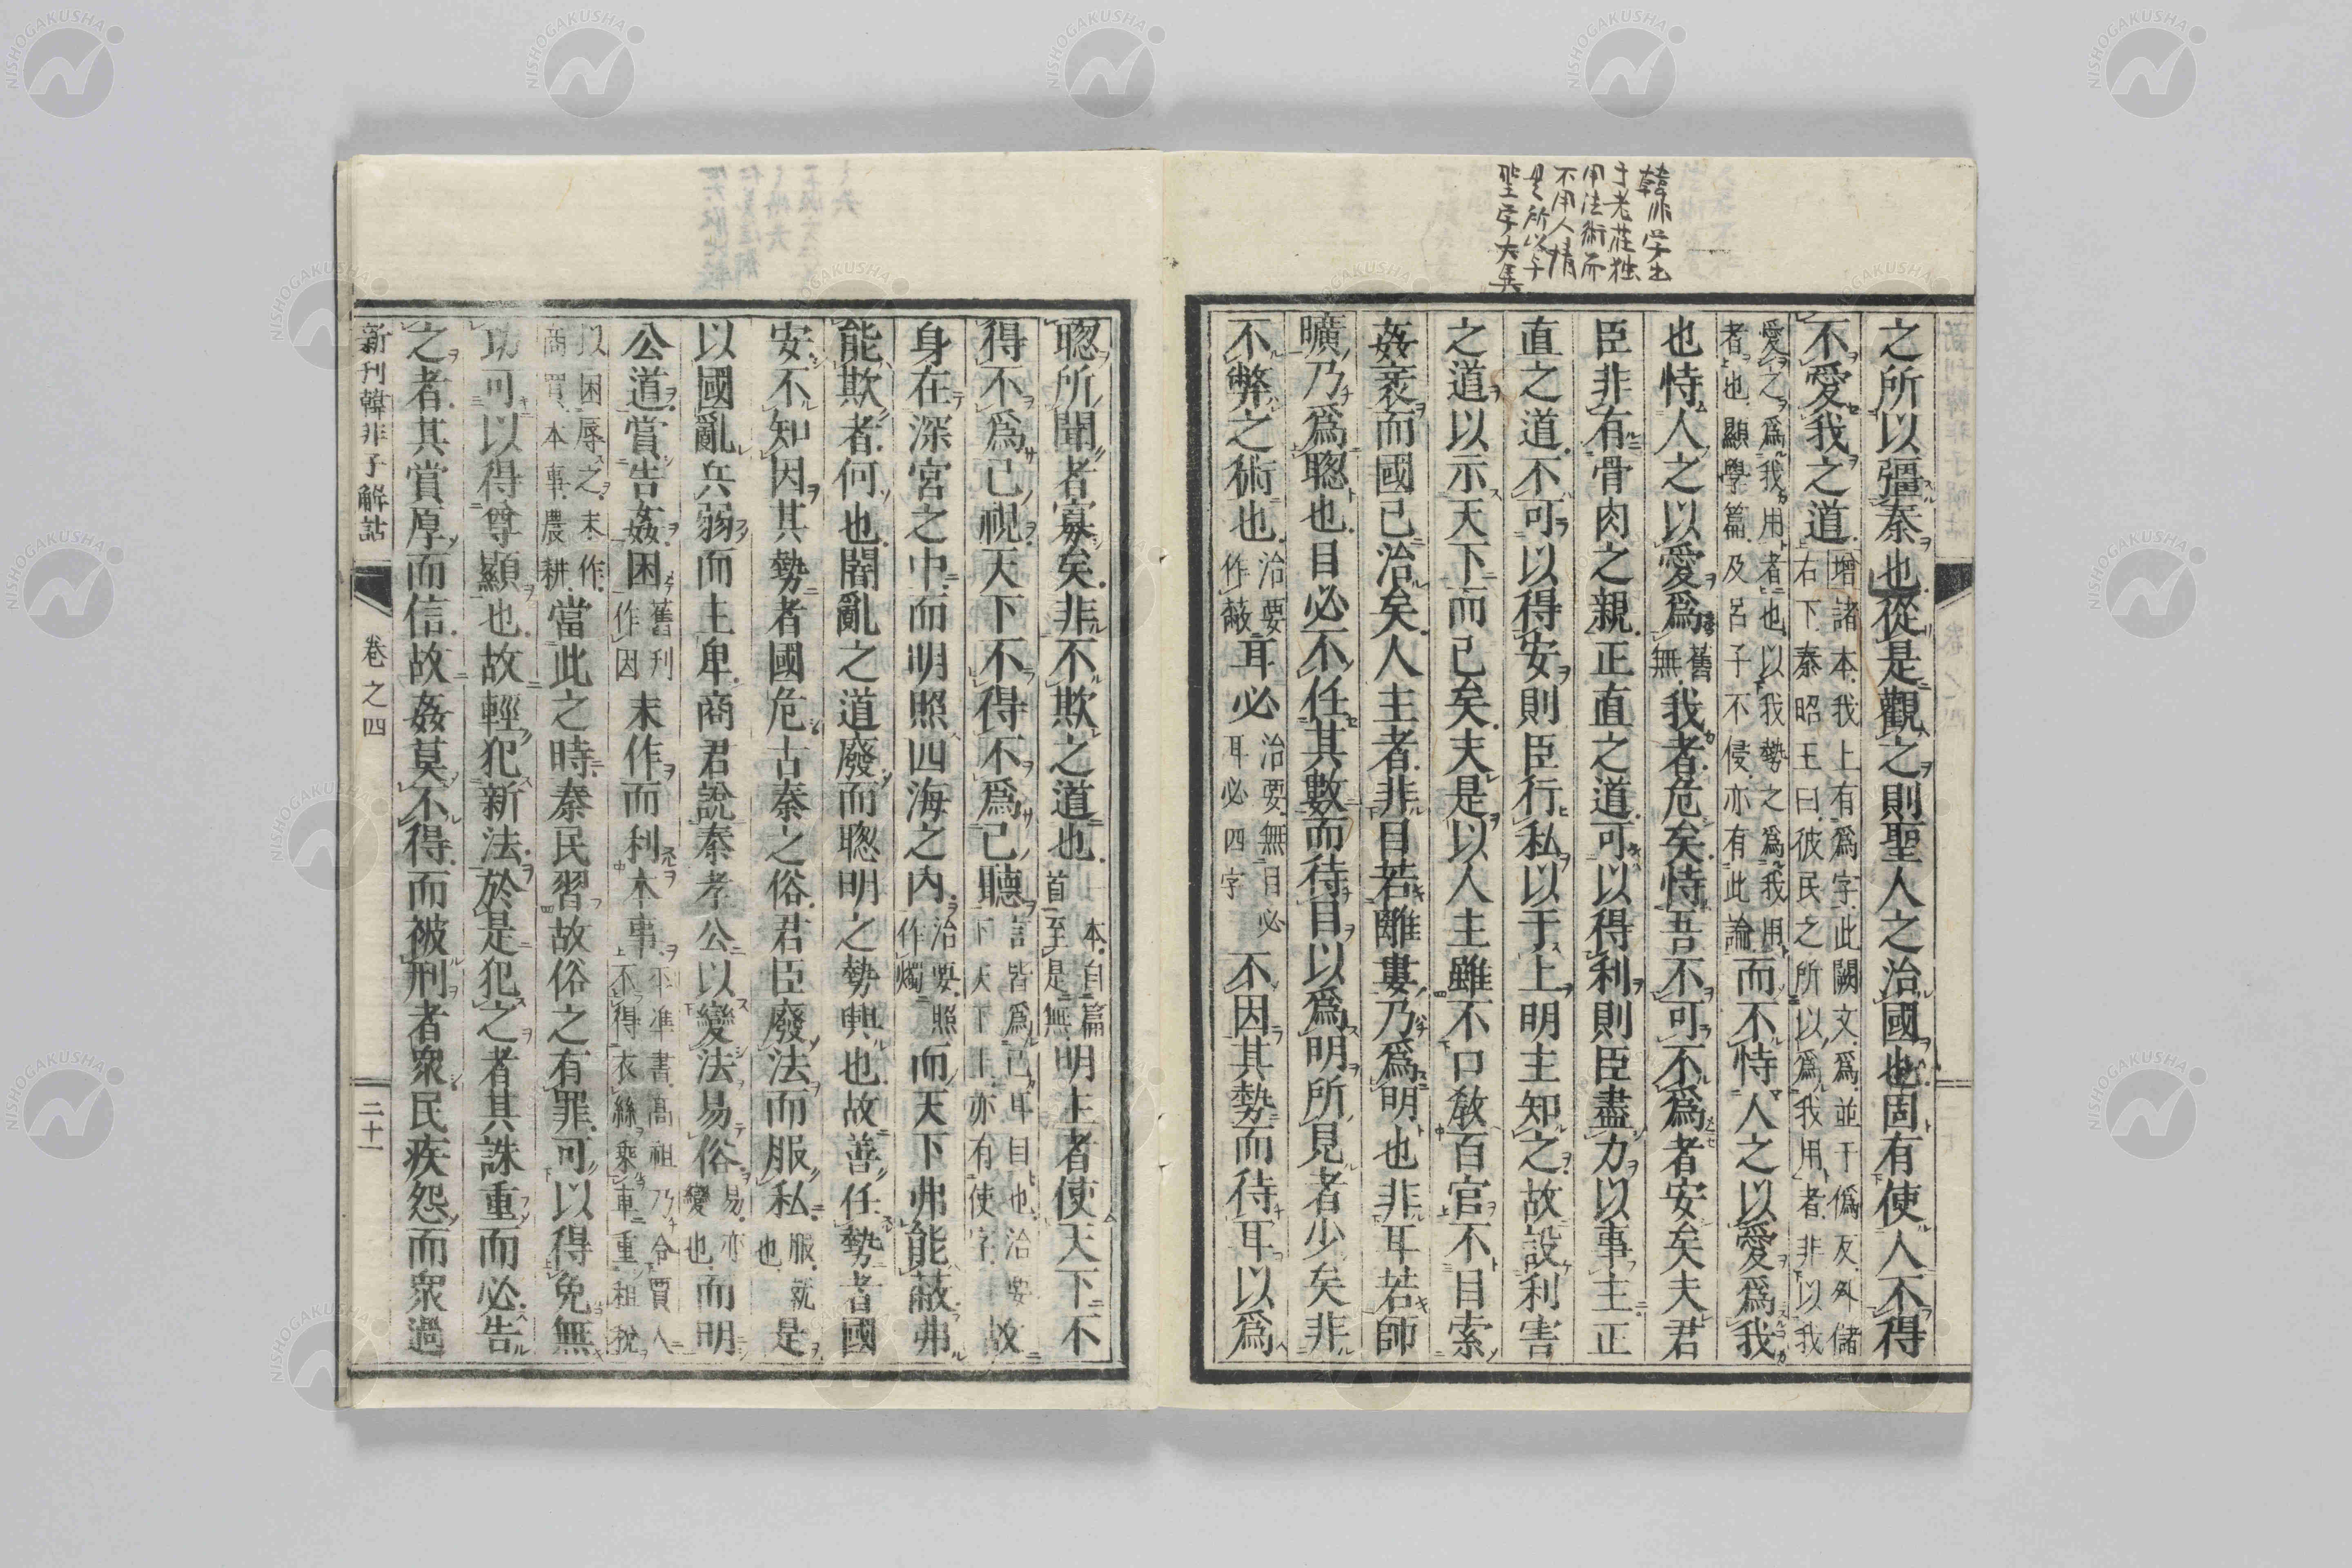 韓非学出
于老荘独
用法術而
不用人情
是所以与
聖学大異
之所以彊秦也從是觀之則聖人之治國也固有使人不得
不愛我之道增諸本我上有爲字此闕文爲並于僞反外儲右下秦昭王曰彼民之所以爲我用者非以我
愛之爲我用者也以我勢之爲我用者也顯學篇及呂子不侵亦有此論而不恃人之以愛爲我
也恃人之以愛爲舊無我者危矣恃吾不可不爲者安矣夫君
臣非有骨肉之親正直之道可以得利則臣盡力以事主正
直之道不可以得安則臣行私以于上明主知之故設利害
之道以示天下而已矣夫是以人主雖不口敎百官不目索
姦衺而國已治矣人主者非目若離婁乃爲明也非耳若師
曠乃爲聰也目必不任其數而待目以爲明所見者少矣非
不弊之術也治要作蔽耳必治要無目必耳必四字不因其勢而待耳以爲
聰所聞者寡矣非不欺之道也本自篇首至是無明主者使天下不
得不爲己視天下不得不爲己聽言皆爲己耳目也治要下天下上亦有使字故
身在深宮之中而明照四海之內治要照作燭而天下弗能蔽弗
能欺者何也闇亂之道廢而聰明之勢興也故善任勢者國
安不知因其勢者國危古秦之俗君臣廢法而服私服就也是
以國亂兵弱而主卑商君說秦孝公以變法易俗易亦變也而明
公道賞告姦困舊刊作因末作而利本事不準書高祖乃令賈人不得衣絲乘車重租稅
以困辱之末作商買本事農耕當此之時秦民習故俗之有罪可以得免無
功可以得尊顯也故輕犯新法於是犯之者其誅重而必告
之者其賞厚而信故姦莫不得而被刑者衆民疾怨而衆過
新刊韓非子解詁 卷之四 二十一